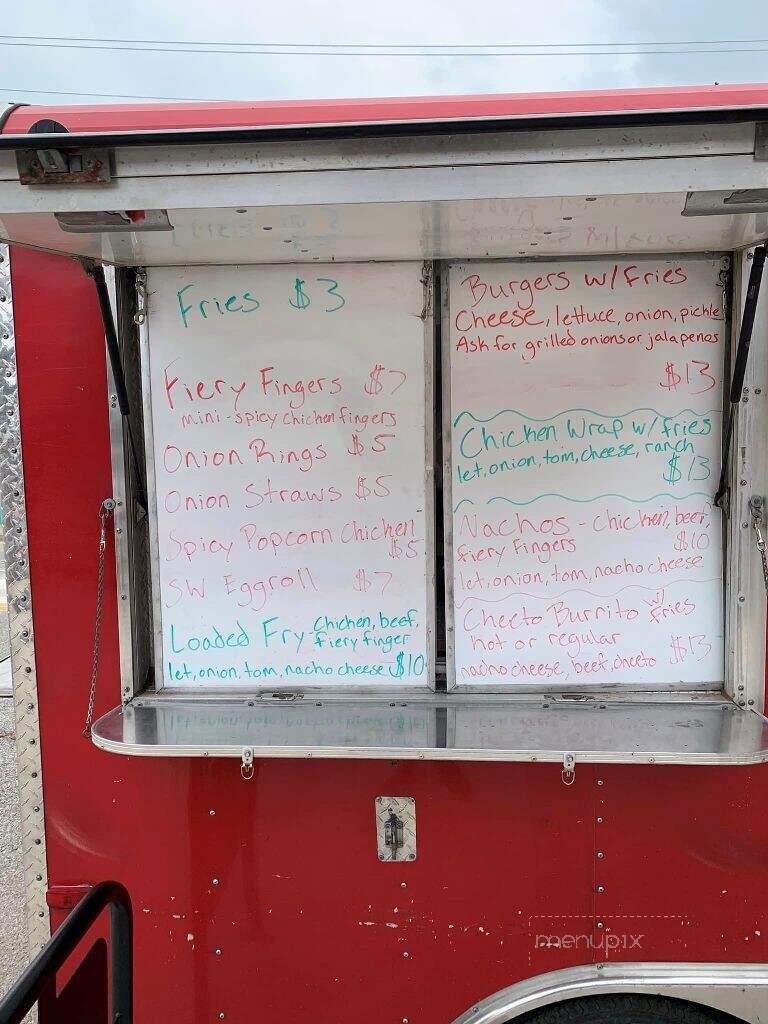 Fries $3
Fiery Fingers $7
mini-spicy chicken fingers
Onion Rings $5
Onion Straws $5
Spicy Popcorn Chicken
$5
SW Eggroll $7
Loaded Fry - Chicken, beef,
fiery finger
let, onion, tom, nacho cheese $10
Burgers w/ Fries
Cheese, lettuce, onion, pickle
Ask for grilled onions or jalapenos
$13
Chicken Wrap w/ fries
let, onion, tom, cheese, ranch
$13
Nachos - chicken, beef,
fiery fingers $10
let, onion, tom, nacho cheese
Cheeto Burrito w/ fries
hot or regular
nacho cheese, beef, cheeto $13
menupix